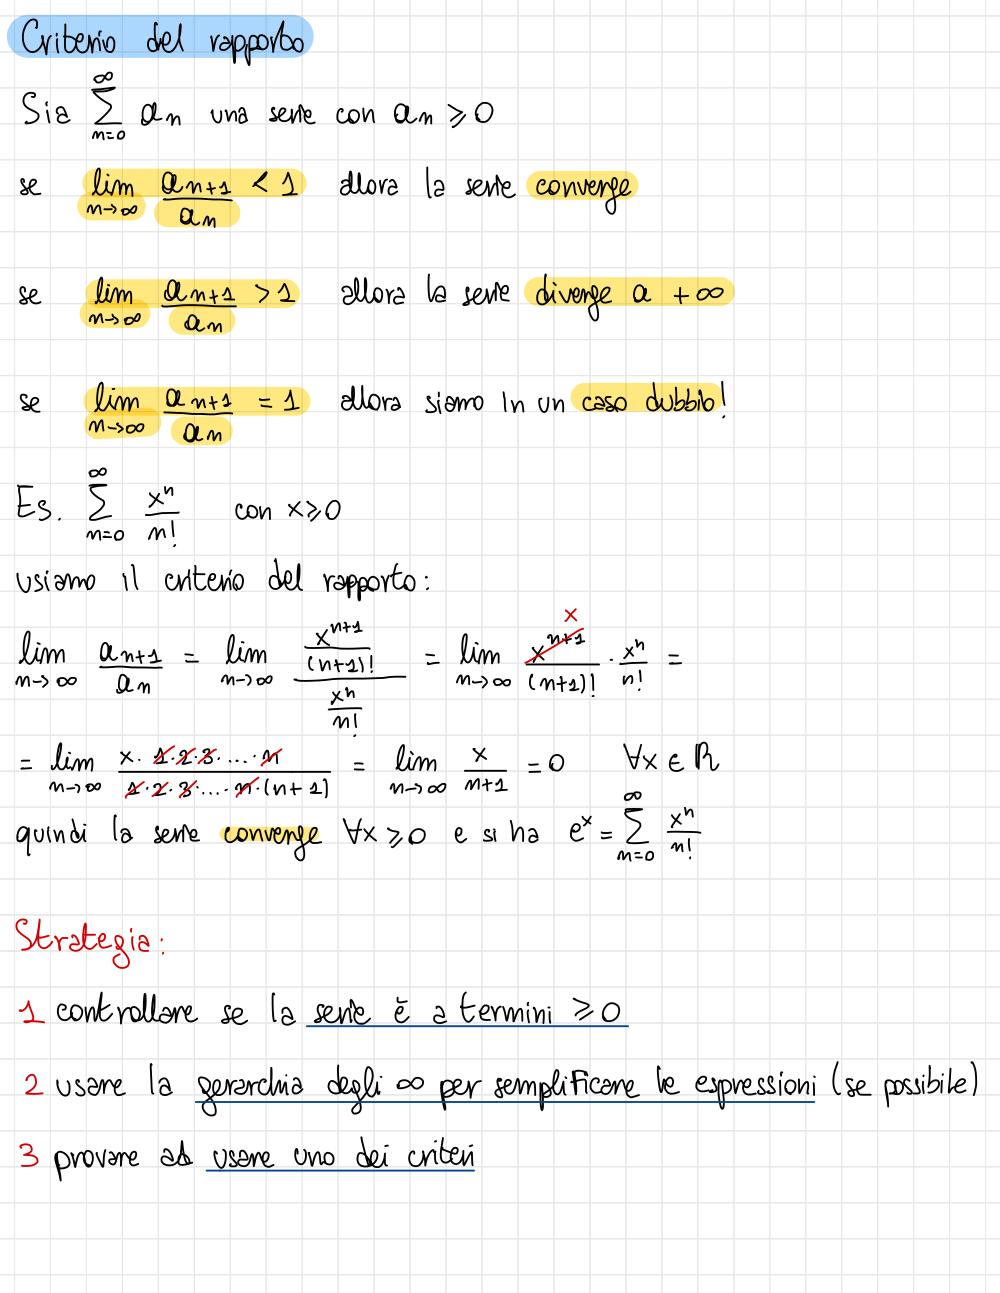 Criterio del rapporto
Sia ∑_{n=0}^{∞} a_n una serie con a_n ⩾ 0
se lim_{n→∞} a_{n+1}/a_n < 1 allora la serie converge
se lim_{n→∞} a_{n+1}/a_n > 1 allora la serie diverge a +∞
se lim_{n→∞} a_{n+1}/a_n = 1 allora siamo in un caso dubbio!
Es. ∑_{n=0}^{∞} x^n/n! con x⩾0
usiamo il criterio del rapporto:
lim_{n→∞} a_{n+1}/a_n = lim_{n→∞} (x^{n+1}/(n+1)!)/(x^n/n!) = lim_{n→∞} x^{n+1}/(n+1)! · x^n/n! = x
= lim_{n→∞} (x·1·2·3·...·n)/(1·2·3·...·n·(n+1)) = lim_{n→∞} x/(n+1) = 0 ∀x ∈ ℝ
quindi la serie converge ∀x ⩾ 0 e si ha e^x = ∑_{n=0}^{∞} x^n/n!
Strategia:
1 controllare se la serie è a termini ⩾ 0
2 usare la gerarchia degli ∞ per semplificare le espressioni (se possibile)
3 provare ad usare uno dei criteri